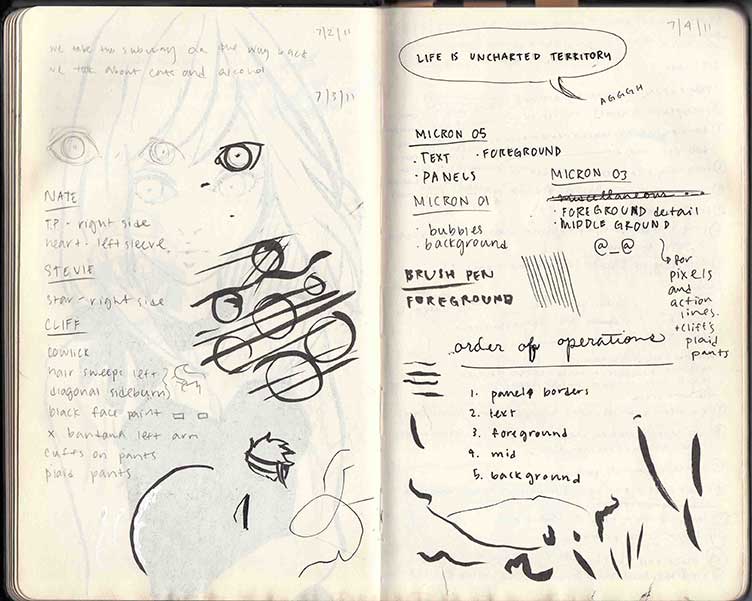 7/2/11
we take the subway on the way back
we talk about cats and alcohol
7/3/11
NATE
T.P - right side
heart - left sleeve
STEVIE
star - right side
CLIFF
cowlick
hair sweeps left
diagonal sideburn
black face paint
x bandana left arm
cuffs on pants
plaid pants
7/4/11
LIFE IS UNCHARTED TERRITORY
AGGGH
MICRON 05
· TEXT · FOREGROUND
· PANELS
MICRON 03
miscellaneous
· FOREGROUND detail
· MIDDLE GROUND
@_@
MICRON 01
· bubbles
· background
for
pixels
and
action
lines.
+cliff's
plaid
pants
BRUSH PEN
FOREGROUND
order of operations
1. panel borders
2. text
3. foreground
4. mid
5. background